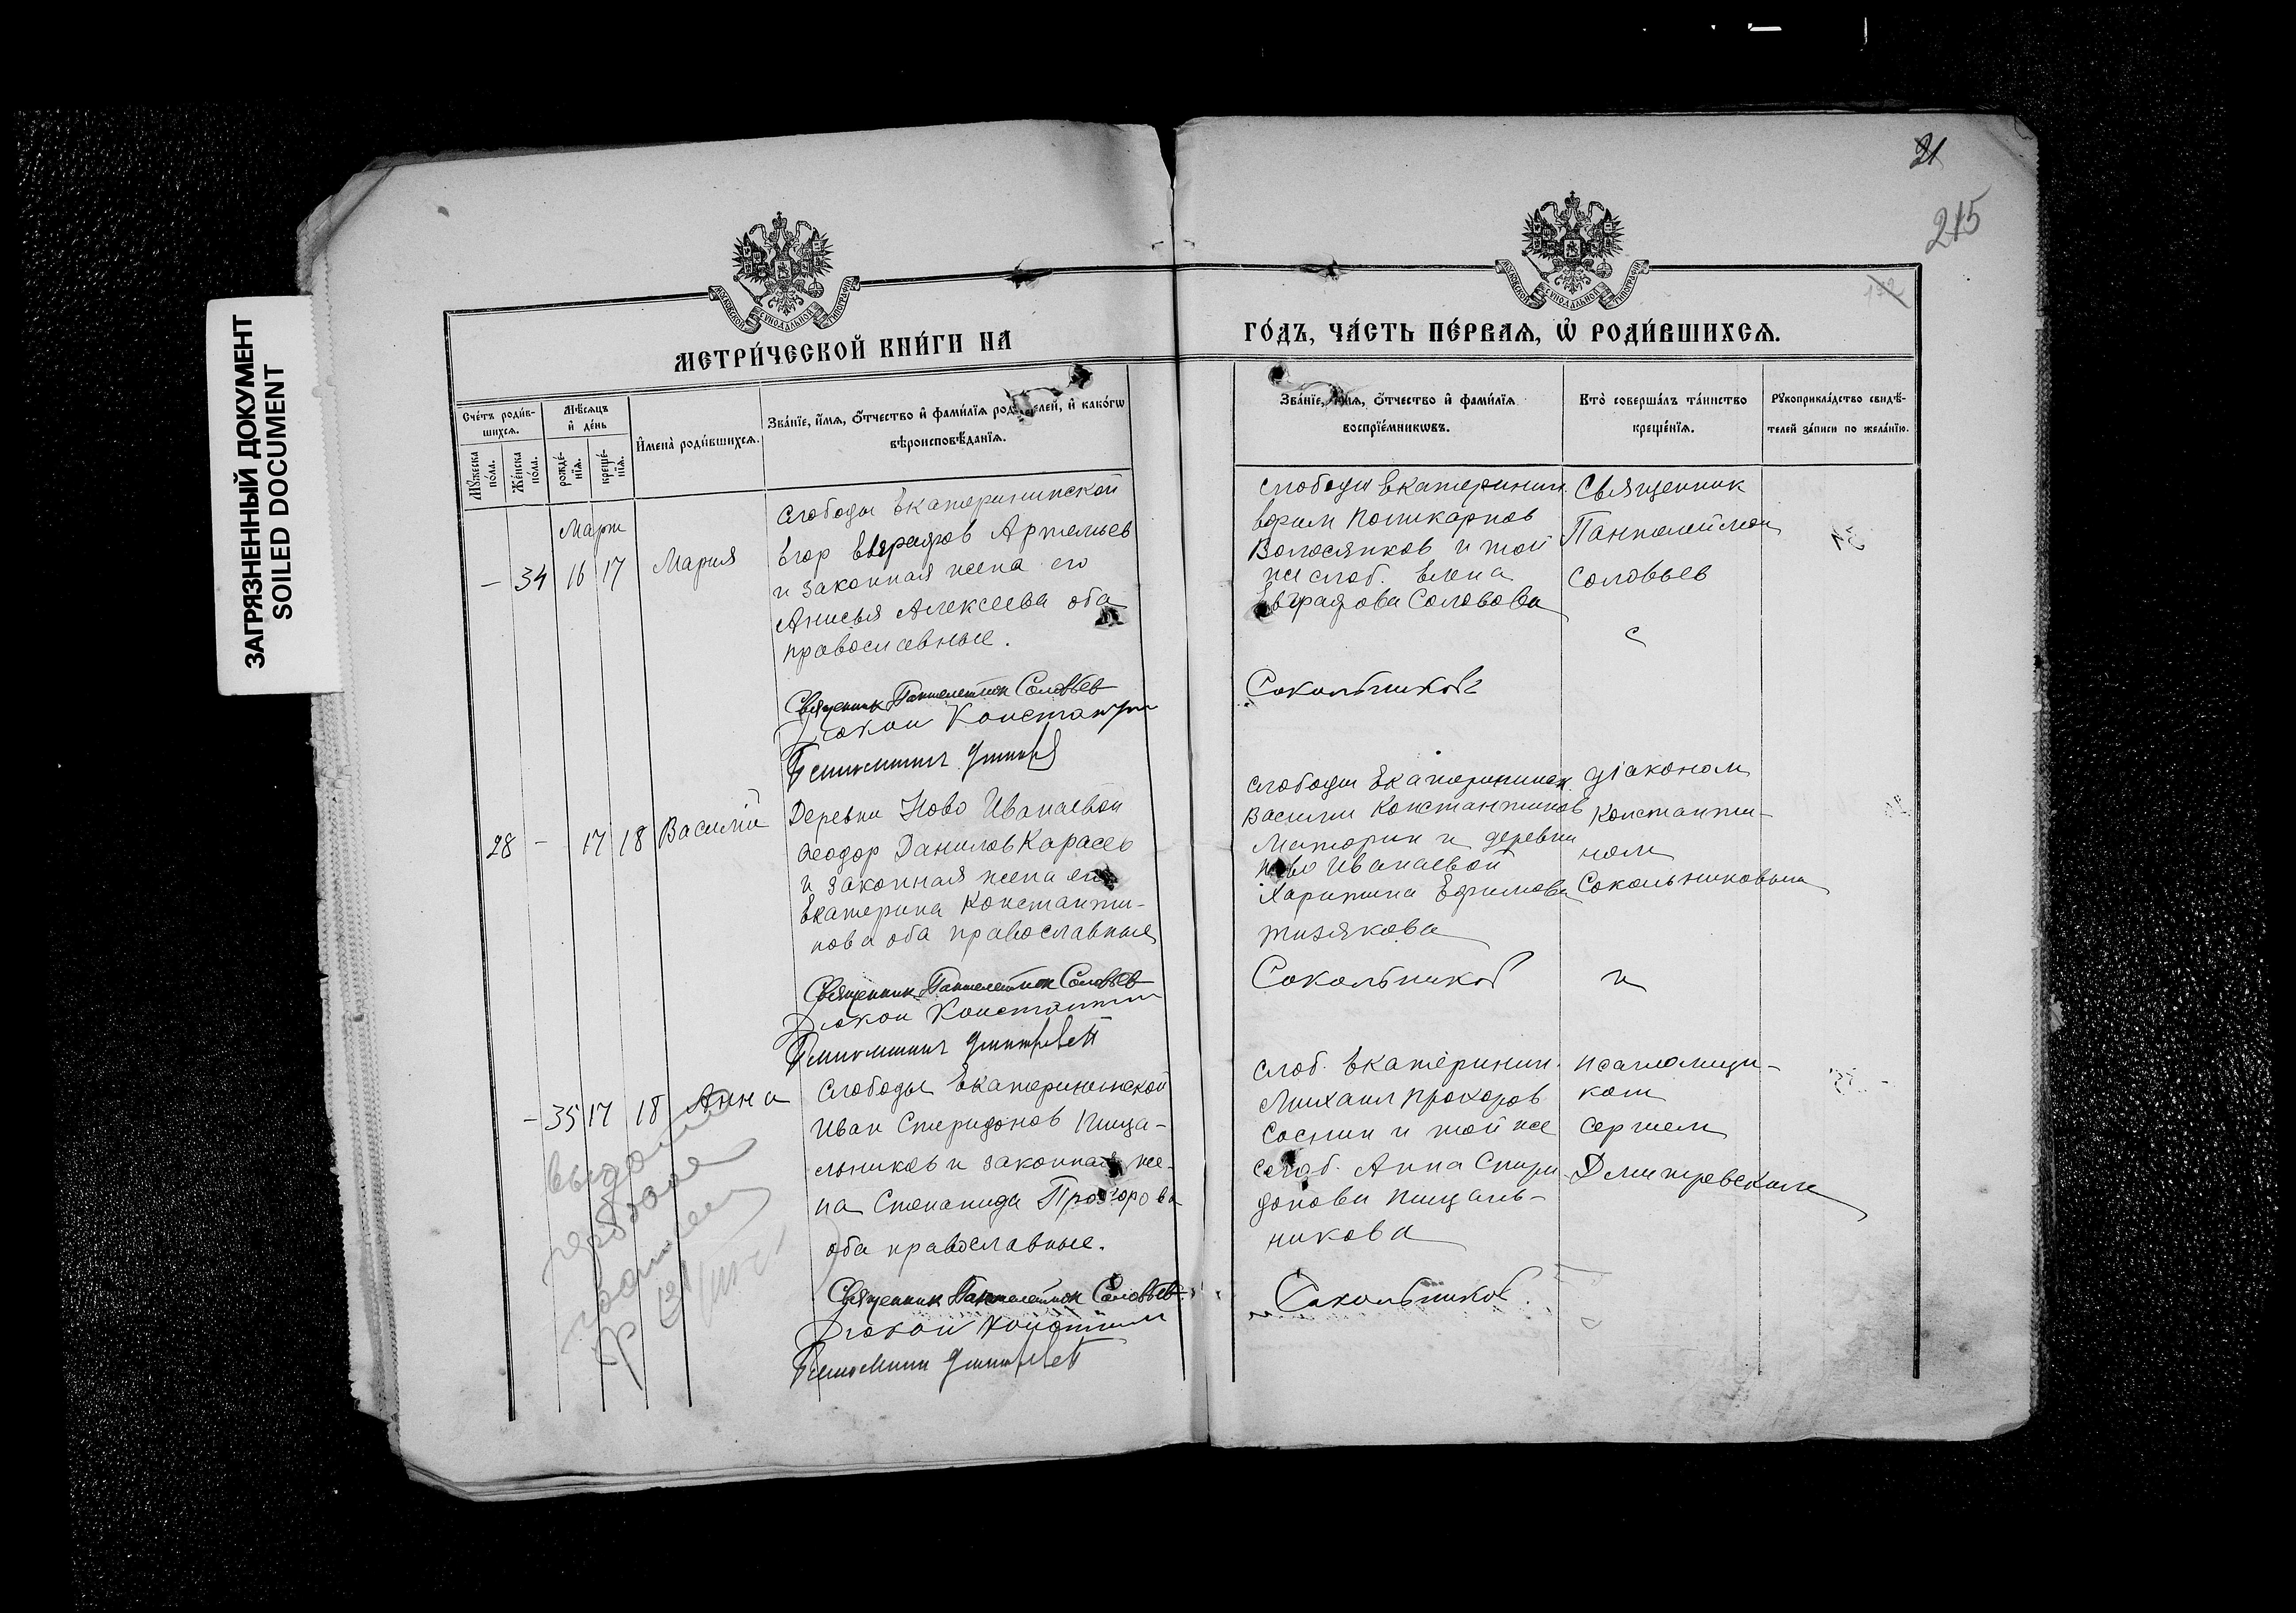 21
215
132
ЗАГРЯЗНЕННЫЙ ДОКУМЕНТ
SOILED DOCUMENT
МОСКОВСКОЙ СѴНОДАЛЬНОЙ ТИПОГРАФІИ
МОСКОВСКОЙ СѴНОДАЛЬНОЙ ТИПОГРАФІИ
МЕТРИ́ЧЕСКОЙ КНИ́ГИ НА
ГО́ДЪ, ЧА́СТЬ ПЕ́РВАѦ, Ѡ҆ РОДИ́ВШИХСѦ.
Сче́тъ роди́в-
шихсѧ.
Мꙋ́жеска
по́ла.
Же́нска
по́ла.
Мѣ́сѧцъ
и҆ де́нь
рожде́-
нїѧ.
креще́-
нїѧ.
И҆мена̀ роди́вшихсѧ.
Зва́нїе, и҆́мѧ, ѻ҆́тчество и҆ фами́лїѧ родителей, и҆ како́гѡ
вѣроисповѣ́данїѧ.
Зва́нїе, и҆́мѧ, ѻ҆́тчество и҆ фами́лїѧ
воспрїе́мникѡвъ.
Кто̀ соверша́лъ та́инство
креще́нїѧ.
Рꙋкоприкла́дство свидѣ́-
телей за́писи по жела́нїю.
Март
– 34 16 17 Мария
слободы Екатерининской
Егор Евграфов Артемьев
и законная жена его
Анисья Алексеева оба
православные.
Священник Пантелеимон Соловьев
Диакон Константин
слободы Екатеринин.
Ефим Поликарпов
Волосянков и той
же слоб. Елена
Евграфова Соловова
Сокольников
Священник
Пантелеймон
Соловьев
28 – 17 18 Василий
Деревни Ново Иванаевой
Феодор Данилов Карасев
и законная жена его
Екатерина Константи-
нова оба православные
Священник Пантелеимон Соловьев
Диакон Константин
слободы Екатерининск.
Василий Константинов
Маторин и деревни
Ново Иванаевой
Харитина Ефимова
Сокольников
діаконом
Константи-
ном
Сокольниковым
и
– 35 17 18 Анна
слободы Екатерининской
Иван Спиридонов Пища-
льников и законная же-
на Степанида Прохорова
оба православные.
Священник Пантелеимон Соловьев
Диакон Констан
слоб. Екатеринин.
Михаил Прохоров
Соснин и той же
слоб. Анна Спири
донова Пищаль-
никова
Сокольников
псаломщи-
ком
Сергием
Дмитревским